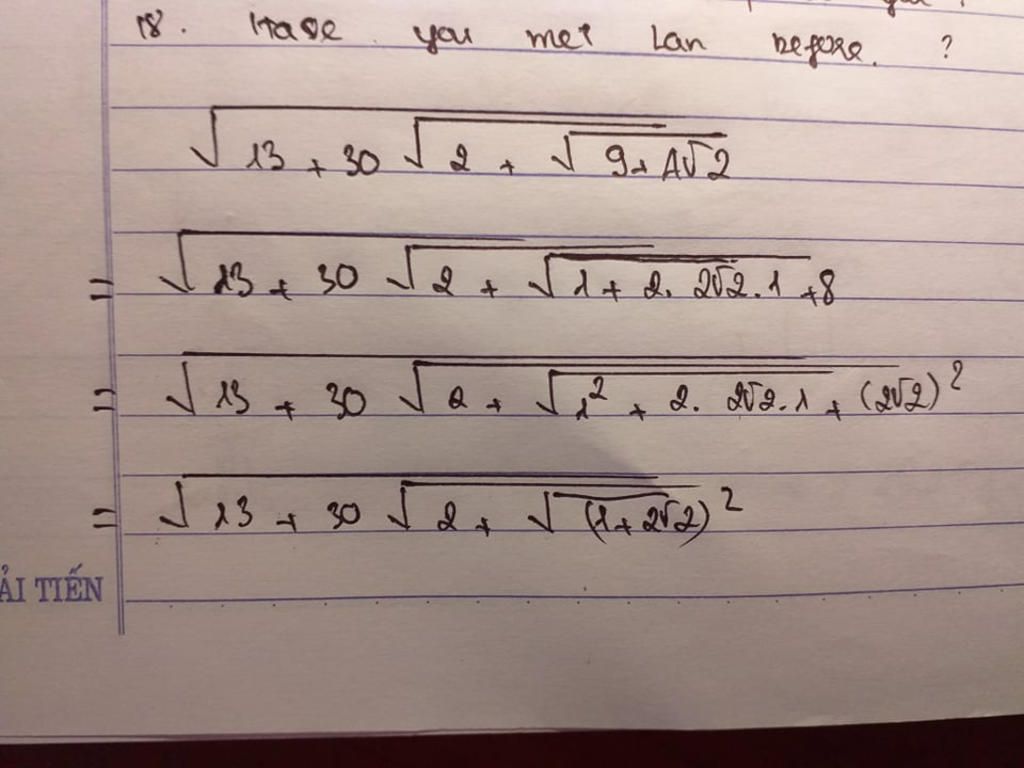 18. Have you met Lan before. ?
√13 + 30 √2 + √9 + 4√2
= √13 + 30 √2 + √1 + 2. 2√2.1 + 8
= √13 + 30 √2 + √1² + 2. 2√2.1 + (2√2)²
= √13 + 30 √2 + √(1 + 2√2)²
ẢI TIẾN